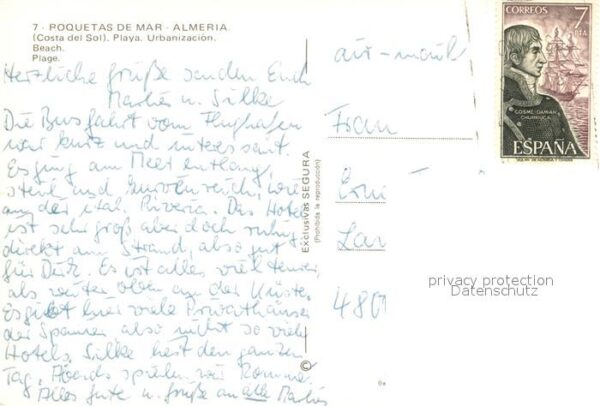 7 - POQUETAS DE MAR - ALMERIA
(Costa del Sol). Playa. Urbanización.
Beach.
Plage.
Herzliche Grüße senden Euch
Marlies u. Silke
Die Busfahrt vom Flughafen
war kurz und interessant.
Es ging am Meer entlang,
steil und kurvenreich, wie
an der ital. Riviera. Das Hotel
ist sehr groß aber doch ruhig
direkt am Strand, also gut
für Dütz. Es ist alles viel teurer,
als weiter oben an der Küste.
Es gibt hier viele Privathäuser
der Spanier also nicht so viele
Hotels. Silke liest den ganzen
Tag, Abends spielen wir Romme.
Alles Gute u. Grüße an alle Marlies
Exclusivas SEGURA
(Prohibida la reproducción)
©
air-mail
Fam
Lan
480
CORREOS 7 PTA
COSME DAMIAN
CHURRUCA
ESPAÑA
privacy protection
Datenschutz